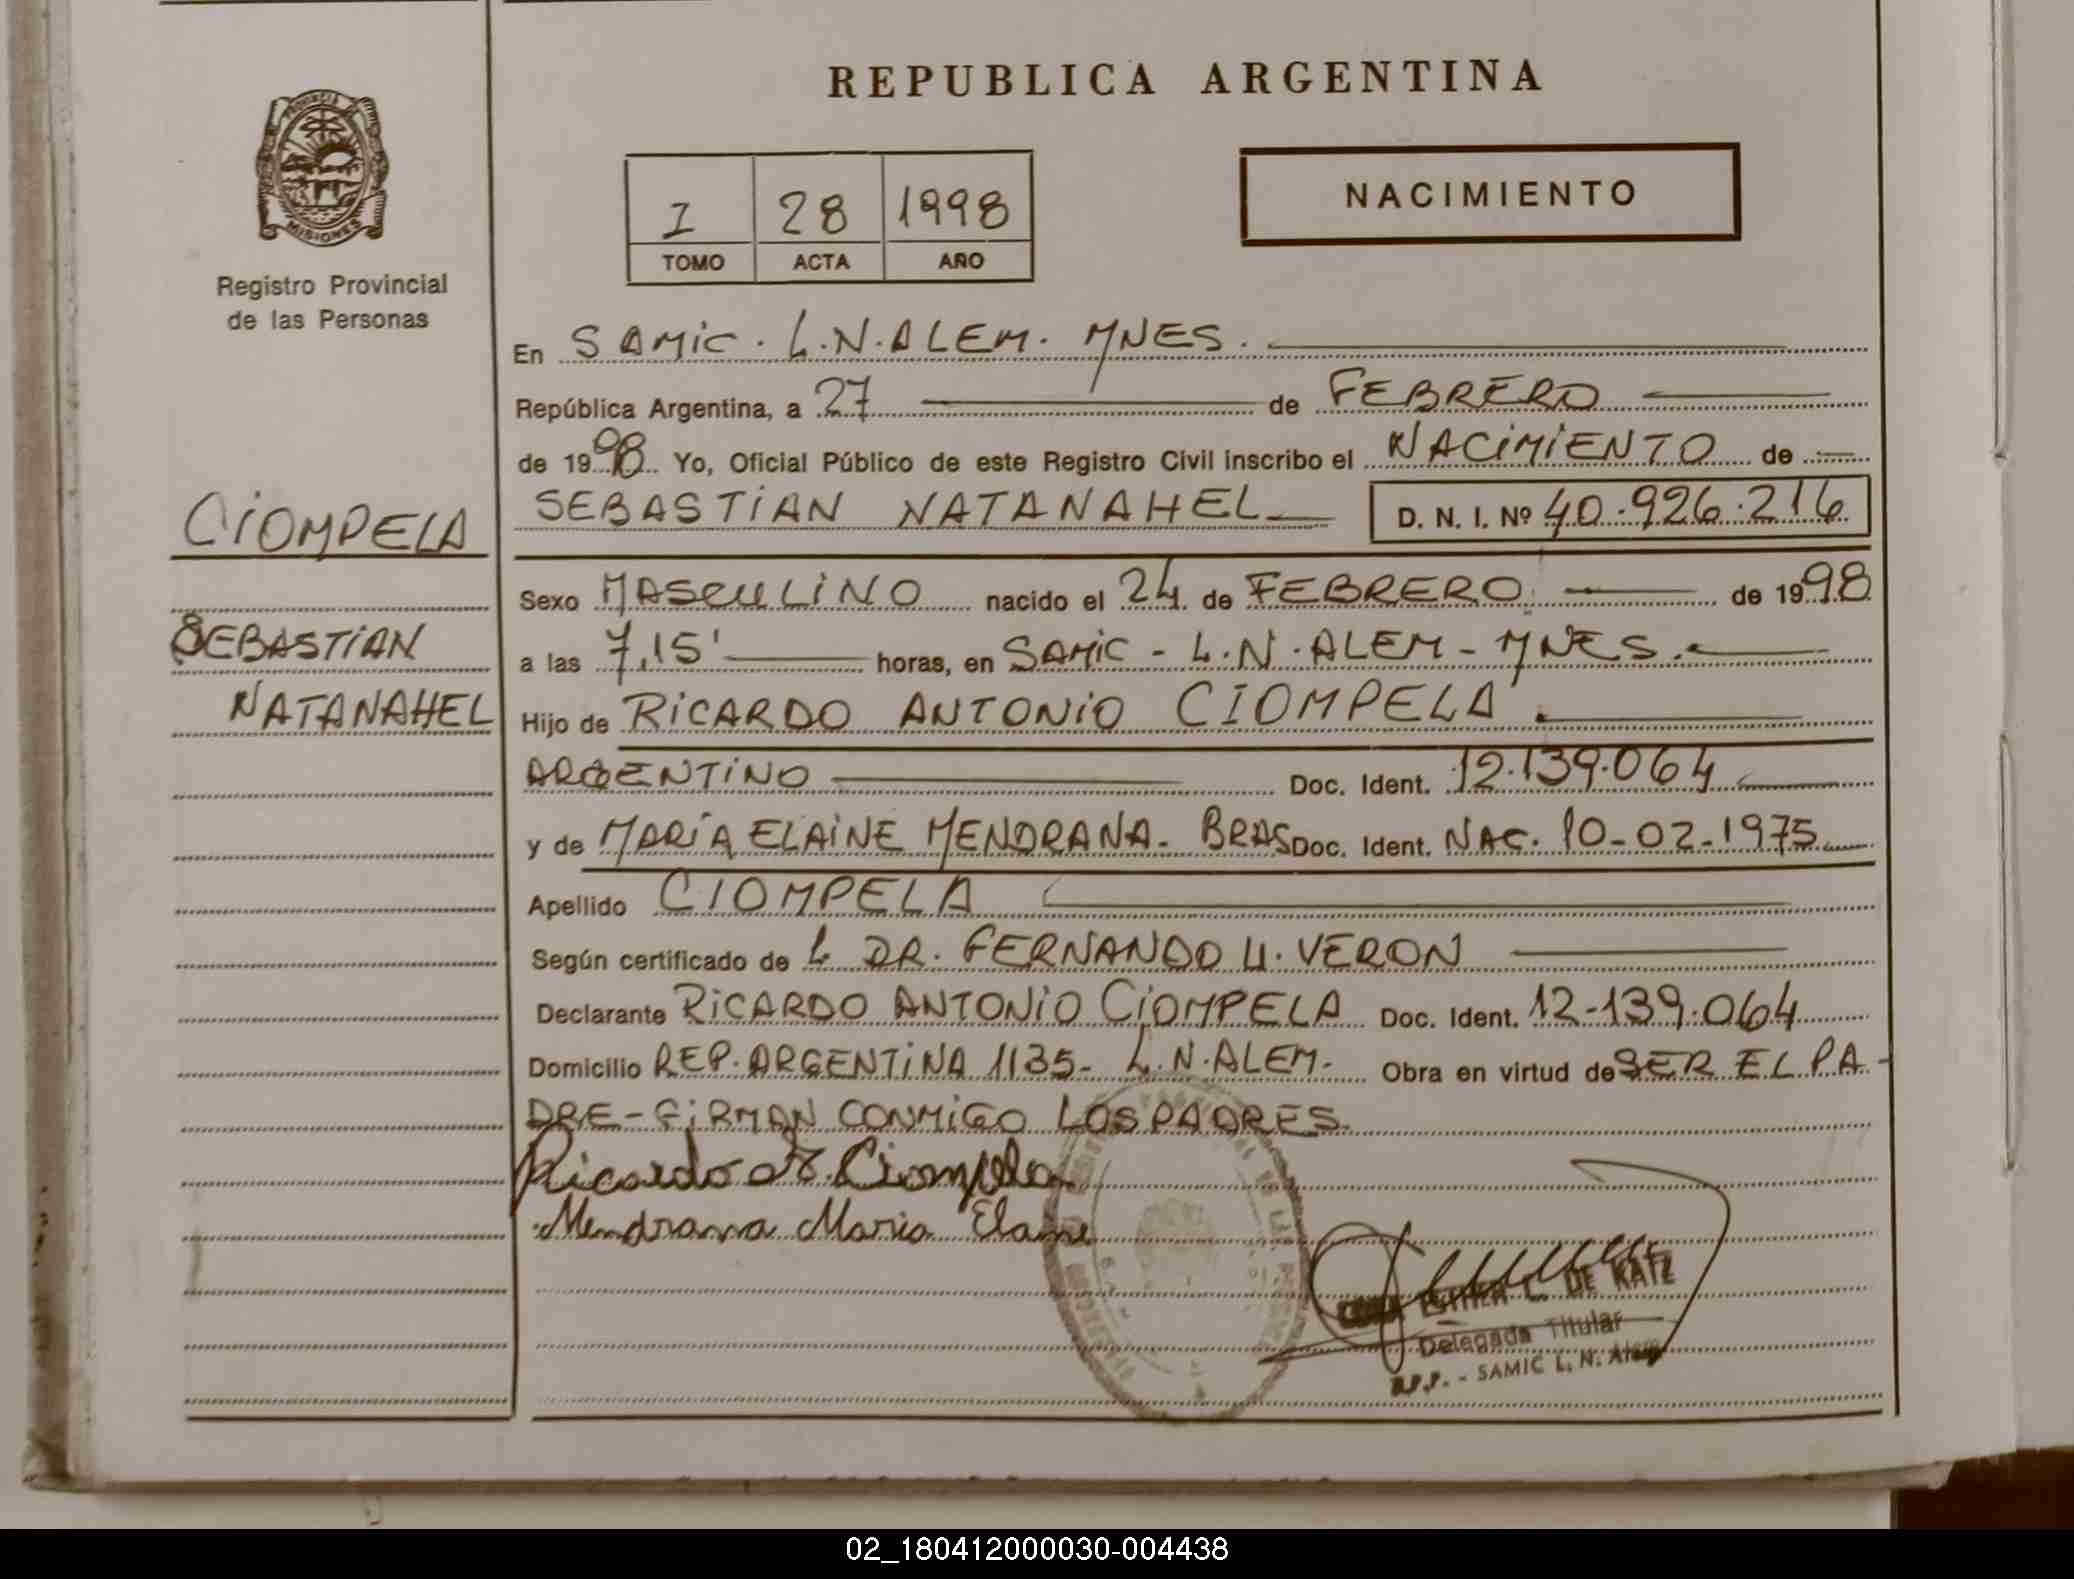 REPUBLICA ARGENTINA
PROVINCIA DE
MISIONES
Registro Provincial
de las Personas
I 28 1998
TOMO ACTA AÑO
NACIMIENTO
En SAMIC. L.N.ALEM. MNES.
República Argentina, a 27 de FEBRERO
de 1998 Yo, Oficial Público de este Registro Civil inscribo el NACIMIENTO de
SEBASTIAN NATANAHEL D. N. I. Nº 40.926.216
CIOMPELA
SEBASTIAN
NATANAHEL
Sexo MASCULINO nacido el 24 de FEBRERO de 1998
a las 7,15' horas, en SAMIC - L.N.ALEM - MNES.
Hijo de RICARDO ANTONIO CIOMPELA.
ARGENTINO Doc. Ident. 12.139.064
y de MARÍA ELAINE MENDRANA. BRAS Doc. Ident. NAC. 10-02-1975
Apellido CIOMPELA
Según certificado de L DR. FERNANDO U. VERON
Declarante RICARDO ANTONIO CIOMPELA Doc. Ident. 12-139.064
Domicilio REP. ARGENTINA 1135- L.N.ALEM. Obra en virtud de SER EL PA-
DRE-FIRMAN CONMIGO LOS PADRES.
Ricardo A. Ciompela
Mendrana Maria Elaine
ESTHER C. DE KATZ
Delegada Titular
R.P.P. - SAMIC L. N. Alem
02_180412000030-004438